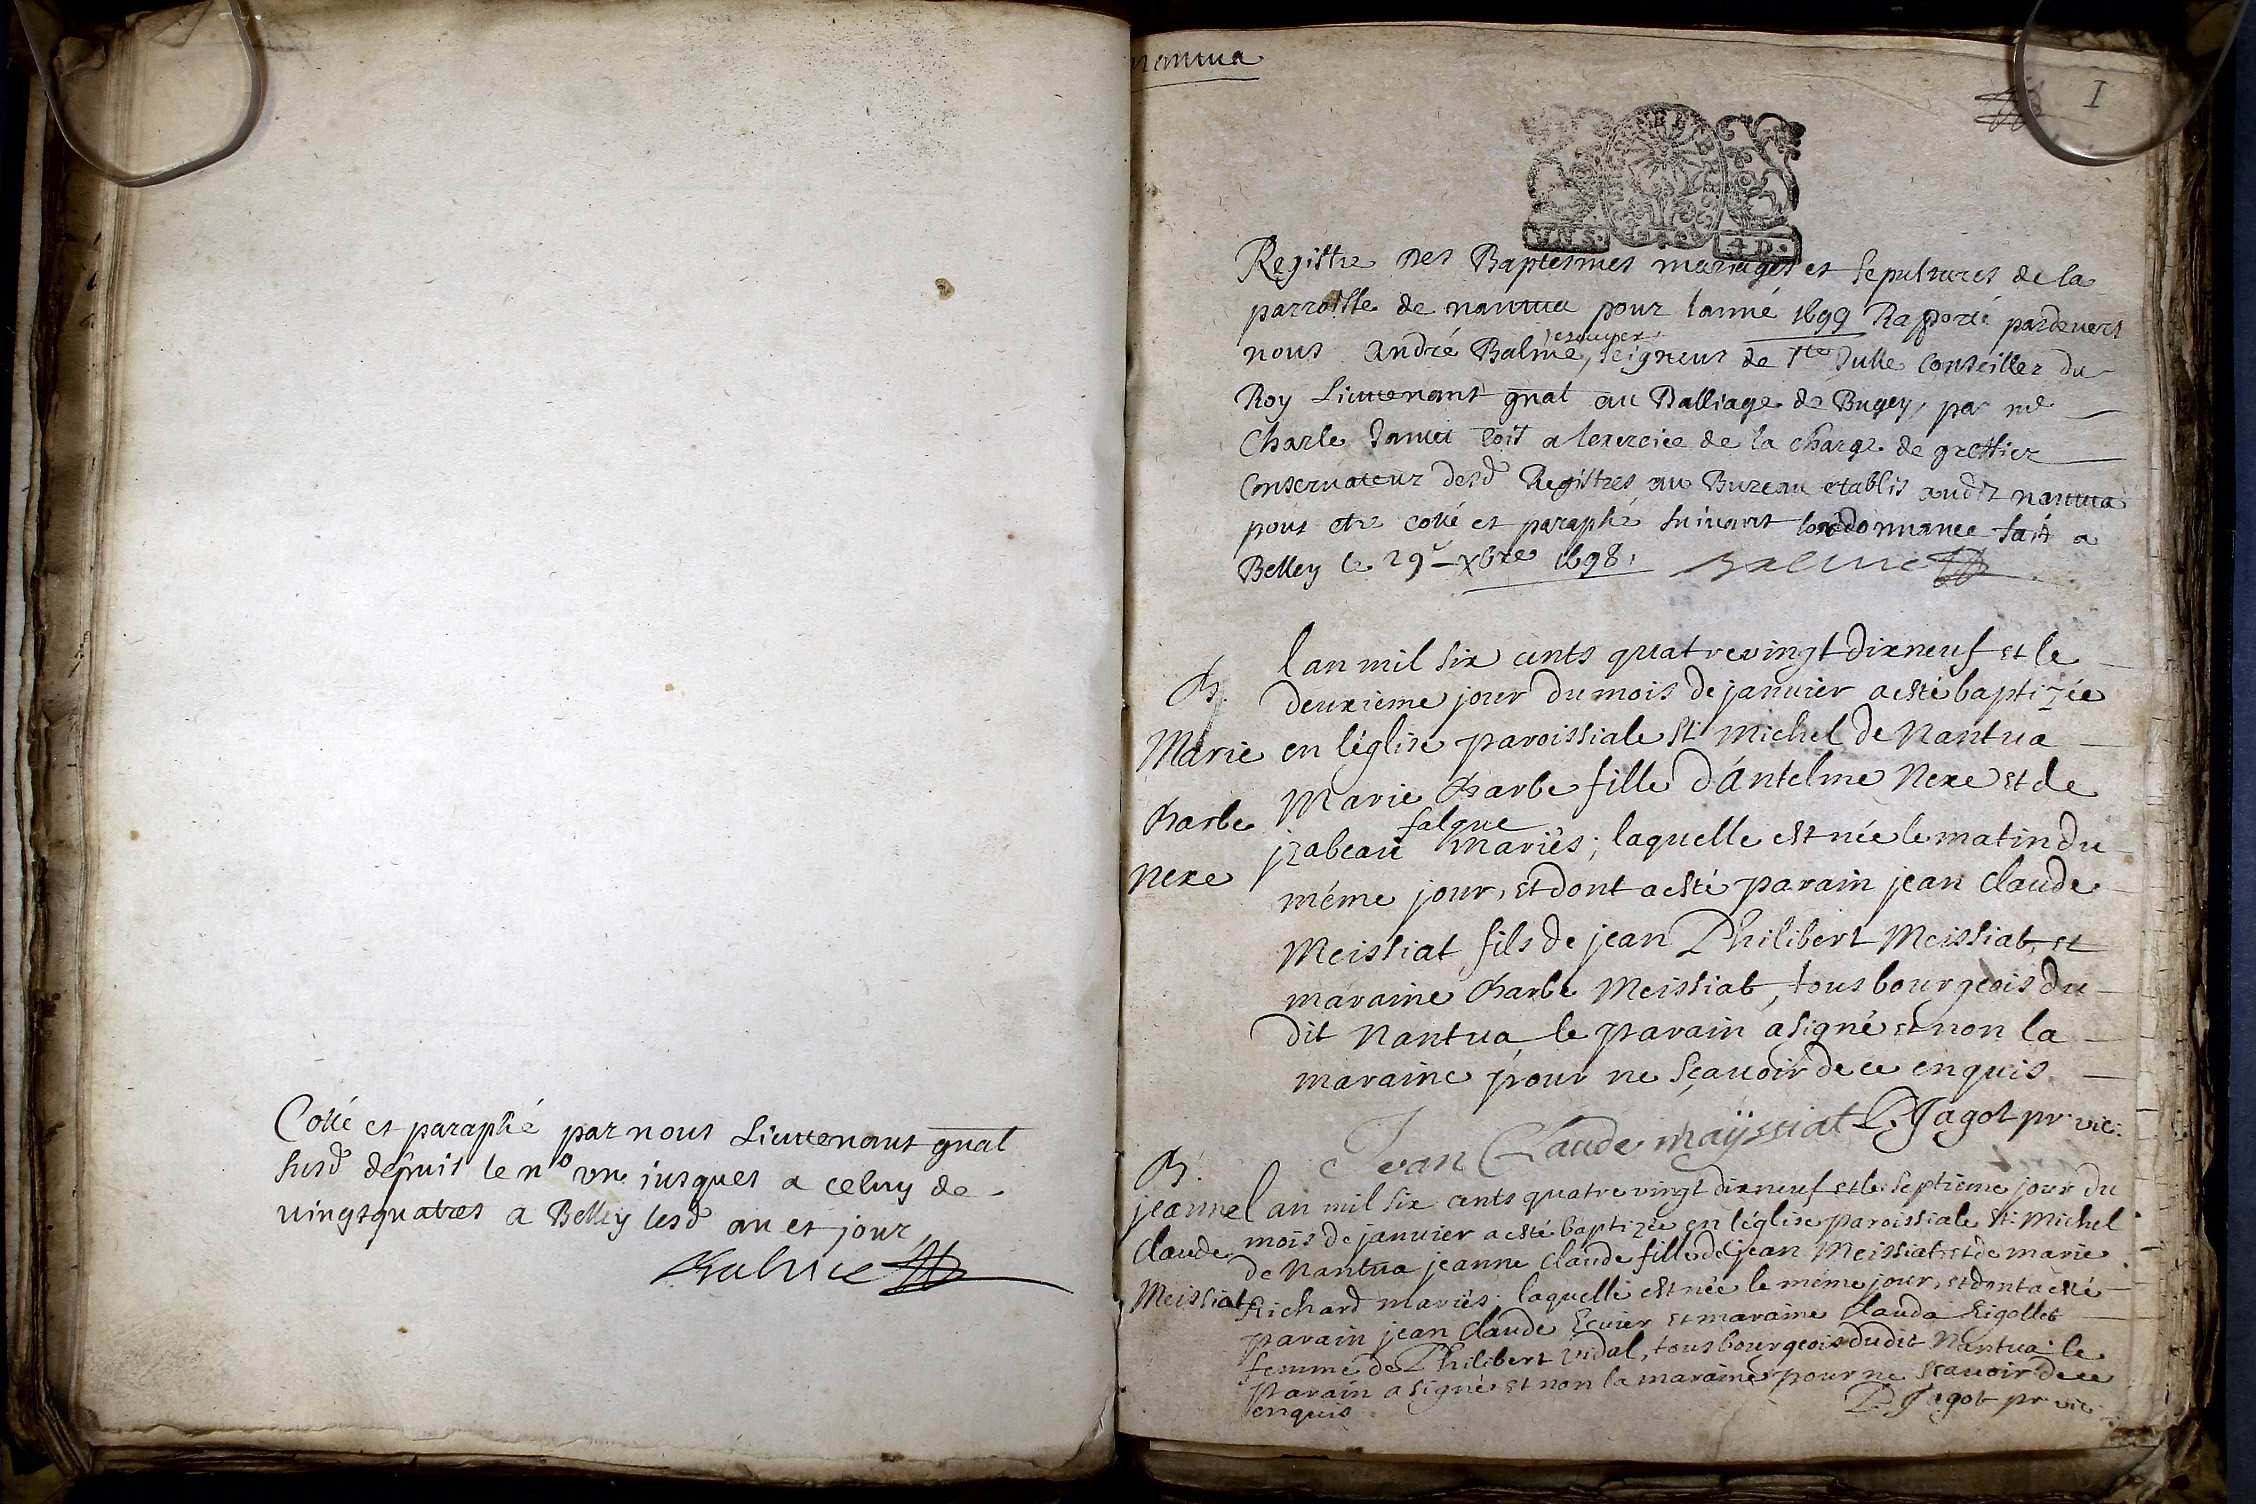 Cotté et paraphé par nous Lieutenant gnal
susd depuis le n° un jusques a celuy de
vingtquatres a Belley lesd an et jour
Balme
nantua
I
4 D.
Registre des Baptesmes mariages et sepultures de la
parroisse de nantua pour lanné 1699 Rapporté pardevers
nous André Balme, escuyer seigneur de Ste Julle Conseiller du
Roy Lieutenant gnal au Balliage de Bugey, par me
Charle Janet Coit a lexercice de la charge de greffier
Conservateur desd Registres au Bureau etablis audit nantua
pour etre cotté et paraphé suivant lordonnance fait a
Belley le 29e xbre 1698.
Balme
B.
Marie
Barbe
Nexe
lan mil six cents quatrevingt dixneuf et le
deuxieme jour du mois de janvier a esté baptizée
en l'église paroissiale St Michel de Nantua
Marie Barbe fille d'Antelme Nexe et de
jzabeau falque mariés; laquelle est née le matin du
méme jour, et dont a esté parain jean Claude
Meissiat fils de jean Philibert Meissiat, et
maraine Barbe Meissiat, tous bourgeois du
dit Nantua, le parain a signé et non la
maraine pour ne sçavoir de ce enquis.
Jean Claude mayssiat P. Jagot pr vic.
B.
jeanne
Claude
Meissiat
lan mil six cents quatre vingt dixneuf et le septieme jour du
mois de janvier a esté baptizée en l'église paroissiale St Michel
de Nantua jeanne Claude fille de jean Meissiat et de marie
Richard mariés; laquelle est née le méme jour, et dont a esté
parain jean Claude Ecuier et maraine Clauda Rigollet
femme de Philibert Vidal, tous bourgeois dudit Nantua; le
Parain a signé et non la maraine pour ne scavoir de ce
enquis
P. Jagot pr vic.